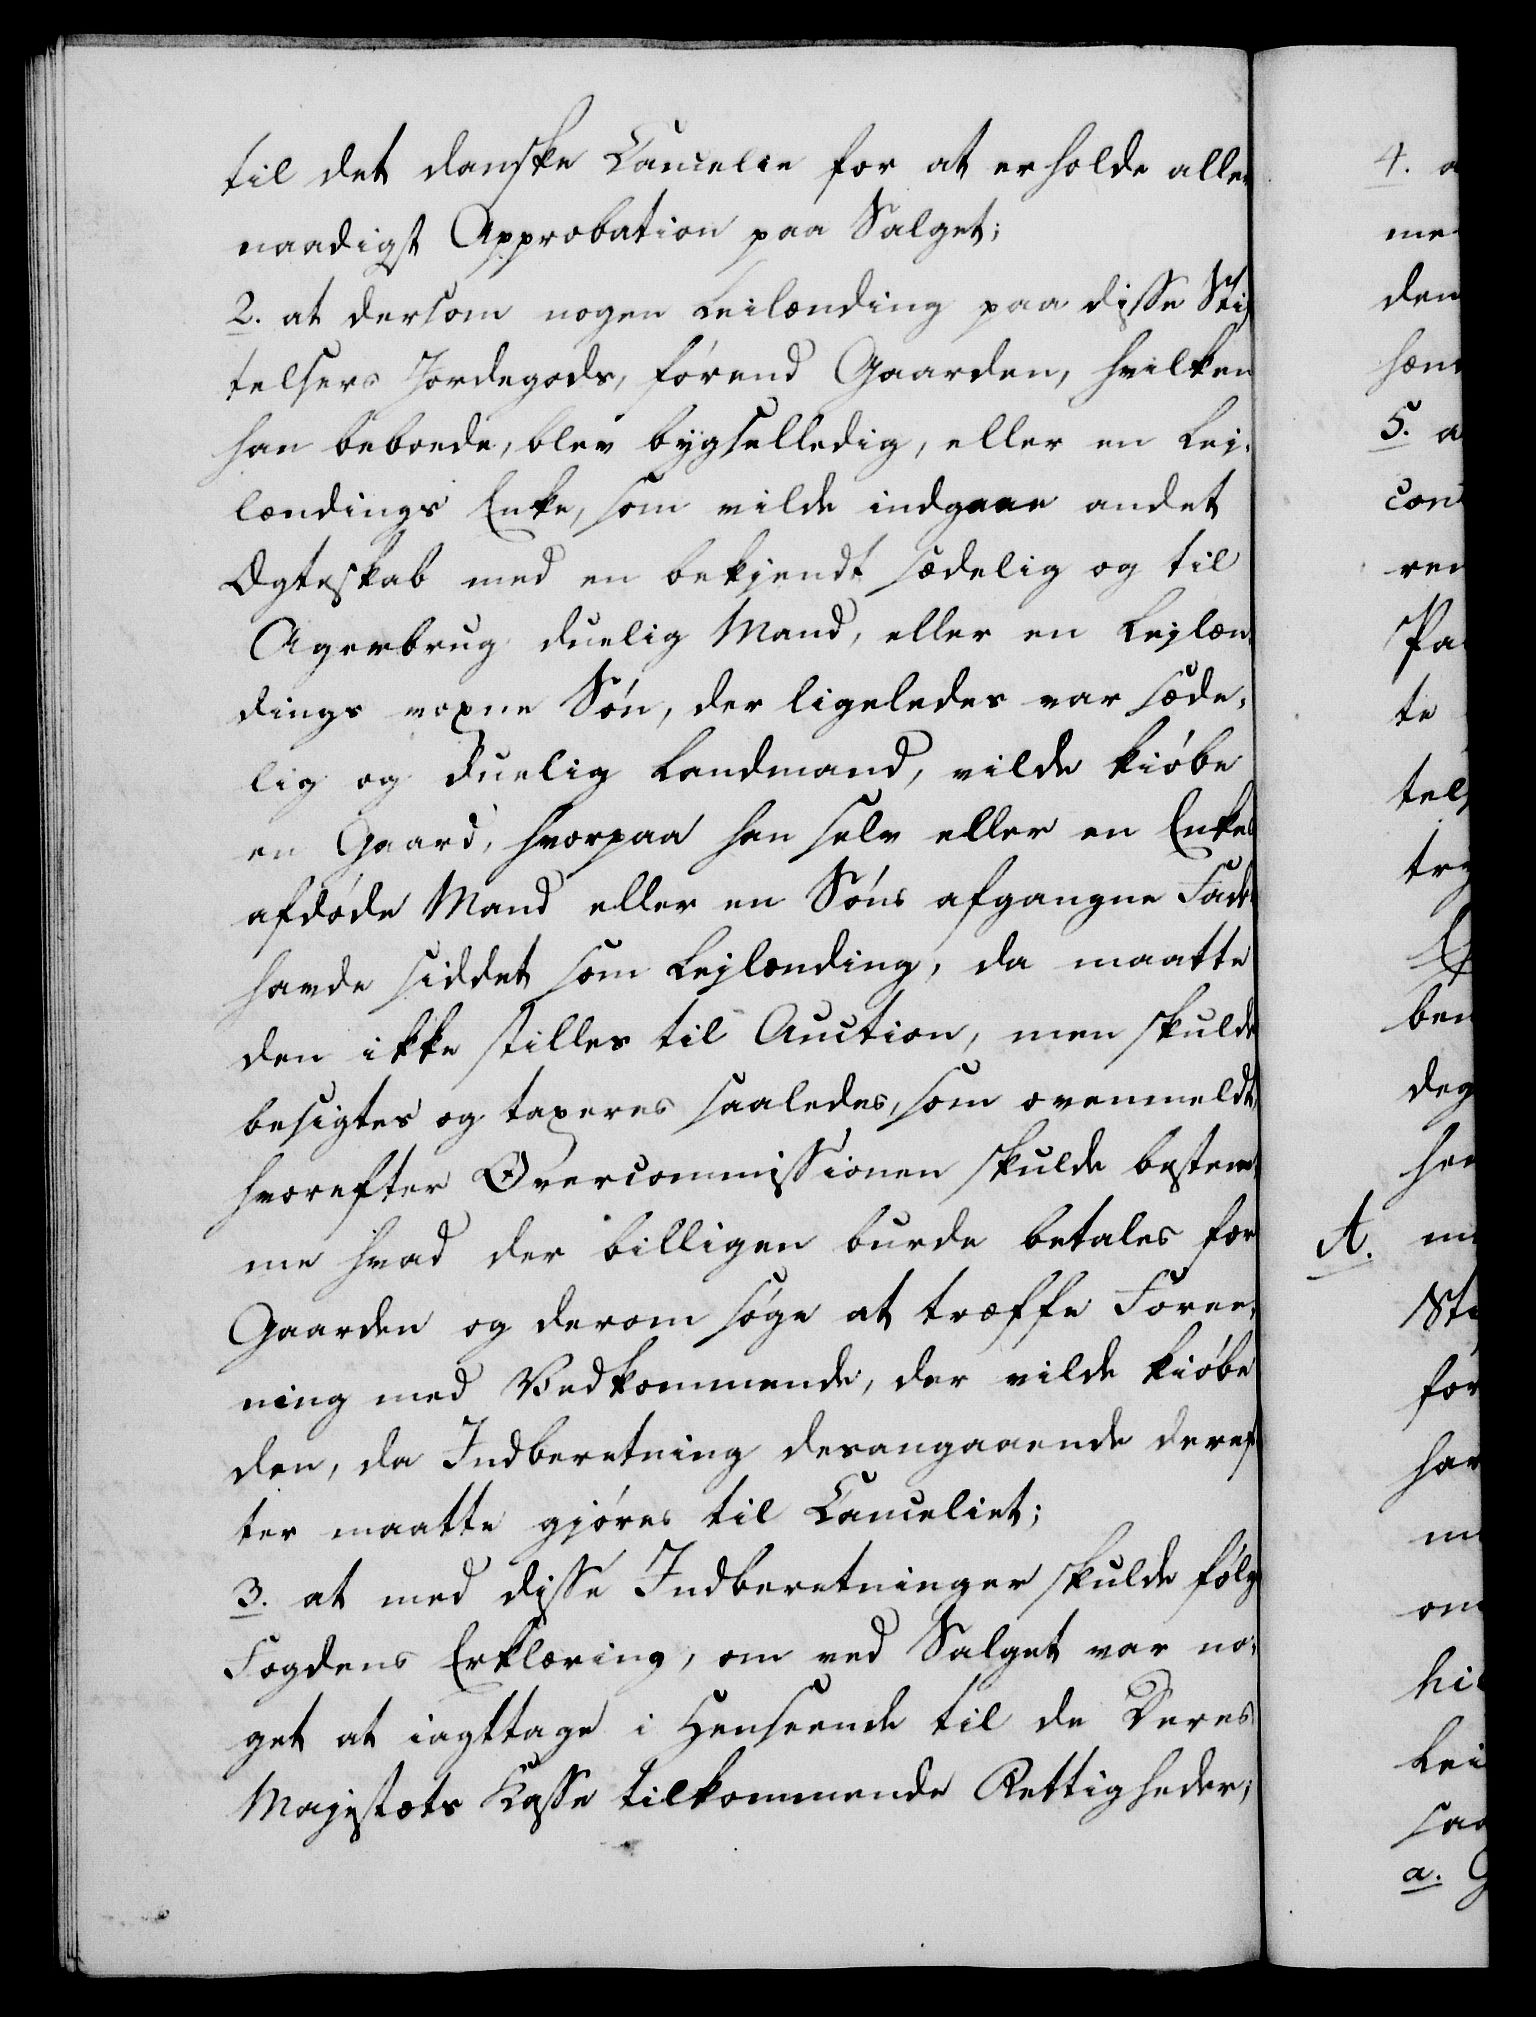 til det danske Cancelie for at erholde aller
naadigst Approbation paa Salget;
2. at dersom nogen Leilænding paa disse Stif
telsers Jordegods, førend Gaarden, hvilken
han beboede, blev bygselledig, eller en Lej-
lændings Enke, som vilde indgaae andet
Ægteskab med en bekjendt sædelig og til
Agerbrug duelig Mand, eller en Lejlæn-
dings voxne Søn, der ligeledes var sæde-
lig og duelig Landmand, vilde kiøbe
en Gaard, hvorpaa han selv eller en Enkes
afdøde Mand eller en Søns afgangne Fader
havde siddet som Lejlænding, da maatte
den ikke stilles til Auction, men skulde
besigtes og taxeres saaledes, som ovenmeldt,
hvorefter Overcommissionen skulde bestem-
me hvad der billigen burde betales for
Gaarden og derom søge at træffe Foree-
ning med Vedkommende, der vilde kiøbe
den, da Indberetning desangaaende deref
ter maatte gjøres til Canceliet;
3. at med disse Indberetninger skulde følge
Fogdens Erklæring, om ved Salget var no-
get at iagttage i Henseende til de Deres
Majestæts Kasse tilkommende Rettigheder;
4. a
me
den
5. a
ren
te
A.
for
a.